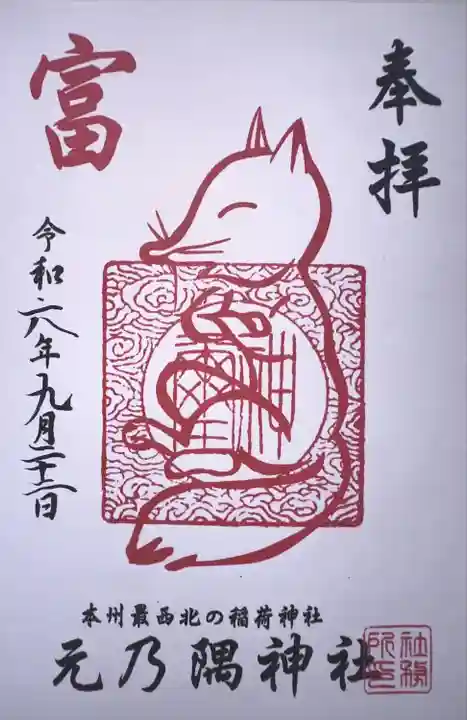 奉拝
富
令和六年九月二十二日
本州最西北の稲荷神社
元乃隅神社
社務
所印